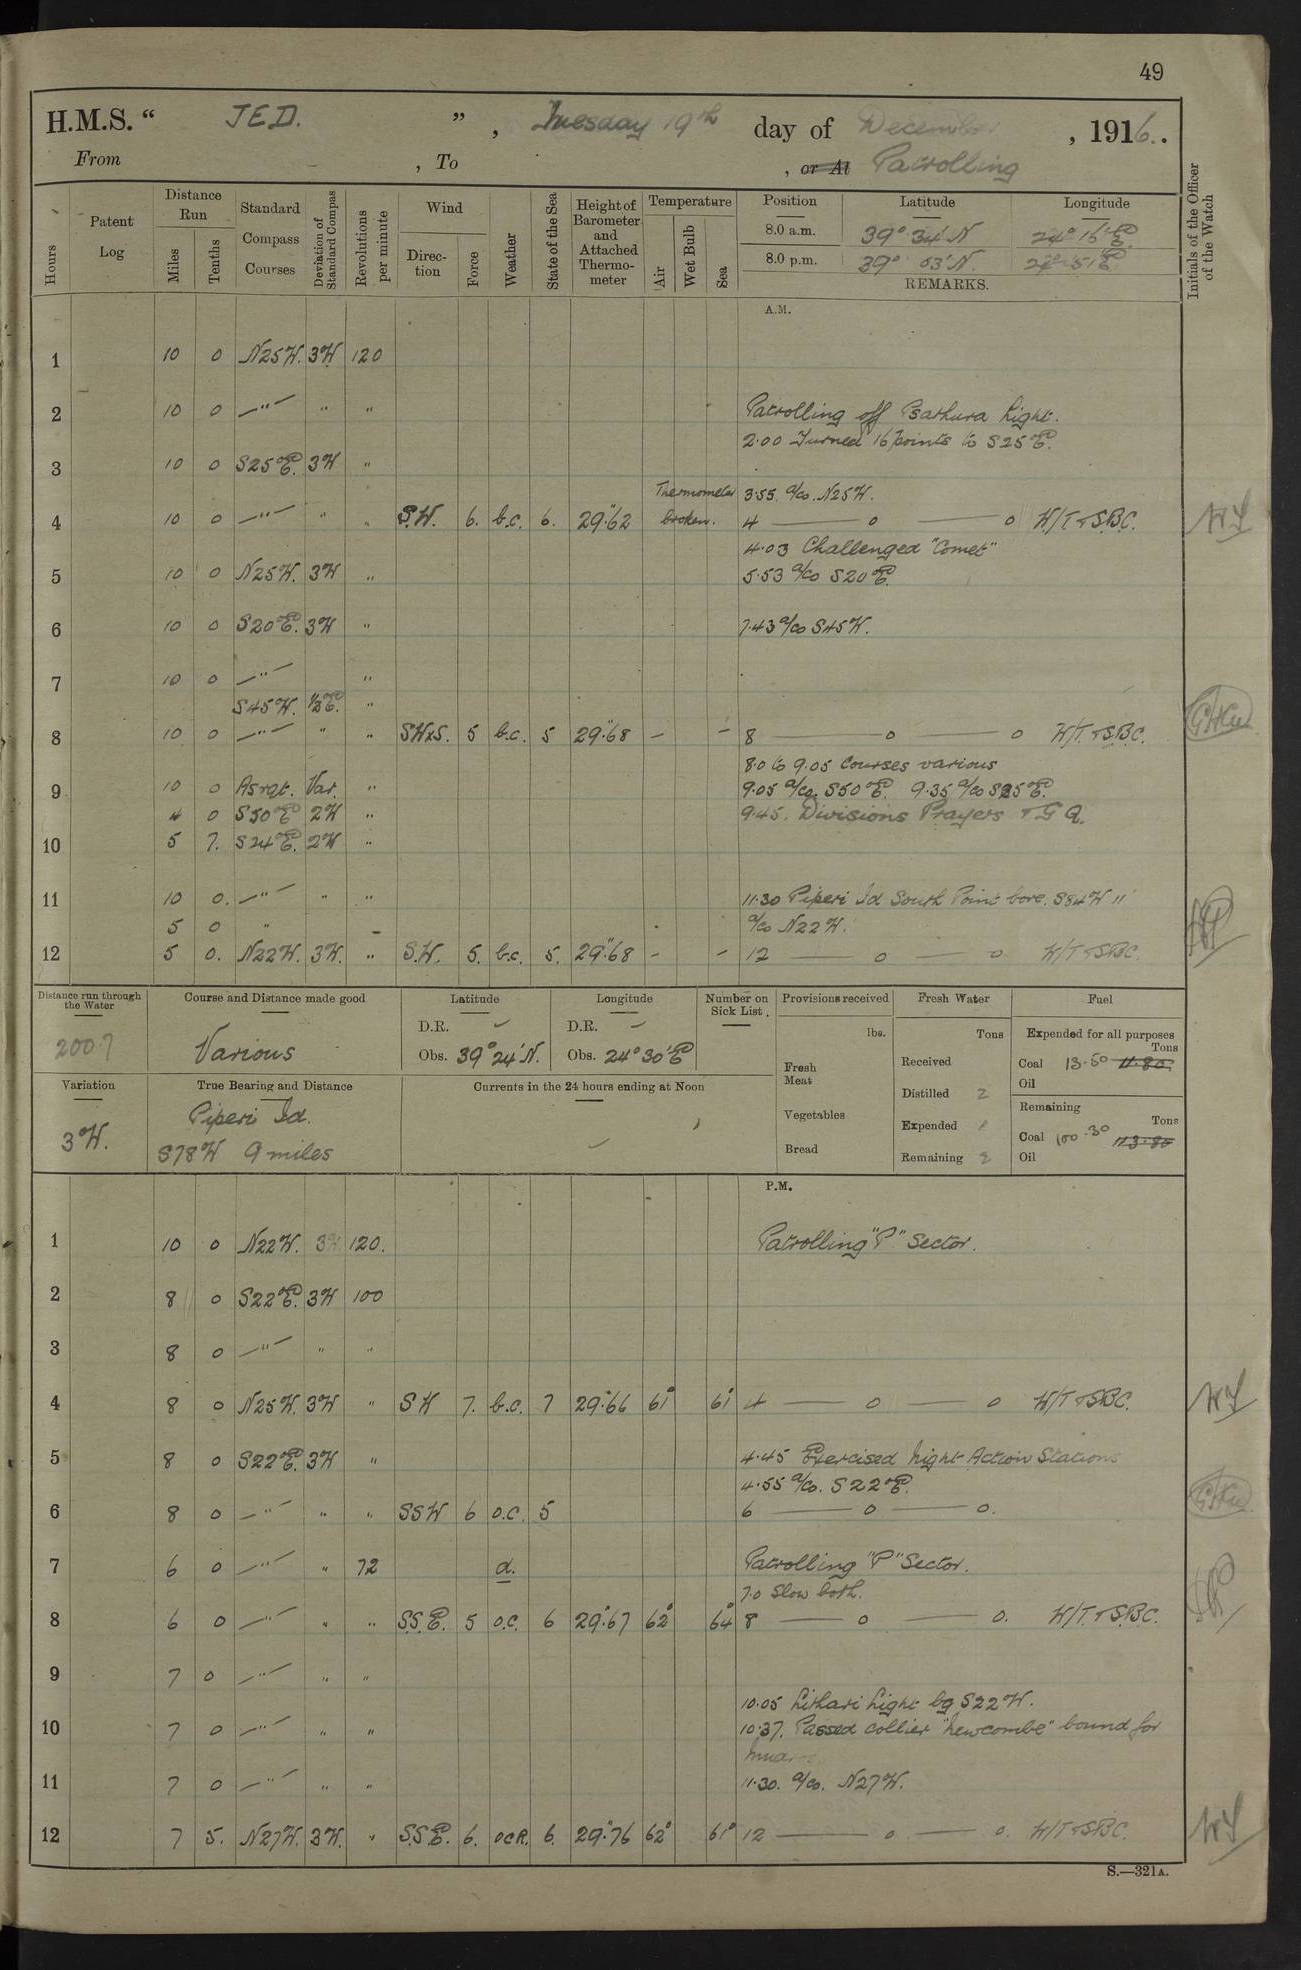 49
H.M.S. “ JED. ” , Tuesday 19th day of December , 1916.
From , To , or At Patrolling
Hours
Patent Log
Distance Run
Miles
Tenths
Standard Compass Courses
Deviation of Standard Compas
Revolutions per minute
Wind
Direction
Force
Weather
State of the Sea
Height of Barometer and Attached Thermometer
Temperature
Air
Wet Bulb
Sea
Position Latitude Longitude
8.0 a.m. 39° 34' N 24° 16' E.
8.0 p.m. 39° 03' N. 24° 51' E
REMARKS.
Initials of the Officer of the Watch
A.M.
1 10 0 N25W. 3W 120
2 10 0 —"— " " Patrolling off Psathura Light.
2.00 Turned 16 points to S25E.
3 10 0 S25E. 3W "
Thermometer 3.55. a/co. N25W.
4 10 0 —"— " " S.W. 6. b.c. 6. 29.62 broken. 4 — o — o W/T & S.B.C.
4.03 Challenged "Comet"
5 10 0 N25W. 3W " 5.53 a/co S20E.
6 10 0 S20E. 3W " 7.43 a/co S45W.
7 10 0 —"— "
S45W. ½E. "
8 10 0 —"— " " SWxS. 5 b.c. 5 29.68 – – 8 — o — o W/T. & S.B.C.
8.0 to 9.05 Courses various
9 10 0 As rqt. Var. " 9.05 a/co. S50E. 9.35 a/co S25E.
4 0 S50E 2W " 9.45. Divisions Prayers & G Q.
10 5 7. S24E. 2W "
11 10 0. —"— " " 11.30 Piperi Id South Point bore. S84W 11'
5 0 " – a/co N22W.
12 5 0. N22W. 3W. " S.W. 5. b.c. 5. 29.68 – – 12 — o — o W/T & SBC.
Distance run through the Water
200.7
Course and Distance made good
Various
Latitude
D.R. –
Obs. 39° 24' N.
Longitude
D.R. –
Obs. 24° 30' E
Number on Sick List.
Provisions received
lbs.
Fresh Meat
Vegetables
Bread
Fresh Water
Tons
Received
Distilled 2
Expended
Remaining
Fuel
Expended for all purposes
Tons
Coal 13.50 11.80.
Oil
Remaining
Tons
Coal 100.30 113.80
Oil
Variation
3°W.
True Bearing and Distance
Piperi Id.
S78W 9 miles
Currents in the 24 hours ending at Noon
–
P.M.
1 10 0 N22W. 3W 120. Patrolling "P" Sector.
2 8 0 S22E. 3W 100
3 8 0 —"— " "
4 8 0 N25W. 3W " SW 7. b.c. 7 29.66 61° 61° 4 — o — o W/T & SBC.
5 8 0 S22E. 3W " 4.45 Exercised Night Action Stations
4.55 a/co. S22E.
6 8 0 —"— " " SSW 6 O.C. 5 6 — o — o.
7 6 0 —"— " 72 d. Patrolling "P" Sector.
7.0 Slow both.
8 6 0 —"— " " S.S.E. 5 O.C. 6 29.67 62° 64° 8 — o — o. W/T. & S.B.C.
9 7 0 —"— " "
10.05 Lithari Light bg S22W.
10 7 0 —"— " " 10.37. Passed collier "Newcombe" bound for
11 7 0 —"— " " 11.30. a/co. N27W.
12 7 5. N27W. 3W. " S.S.E. 6. OCR. 6. 29.76 62° 61° 12 — o — o. W/T & SBC.
S.—321A.